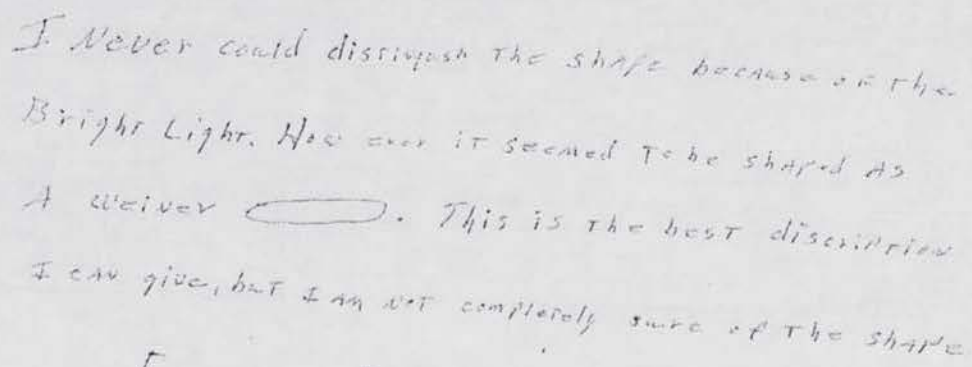 I Never could distinqush The shape because of The
Bright Light. How ever it seemed To be shaped As
A weiner. This is The best discription
I can give, but I am not completely sure of The shape